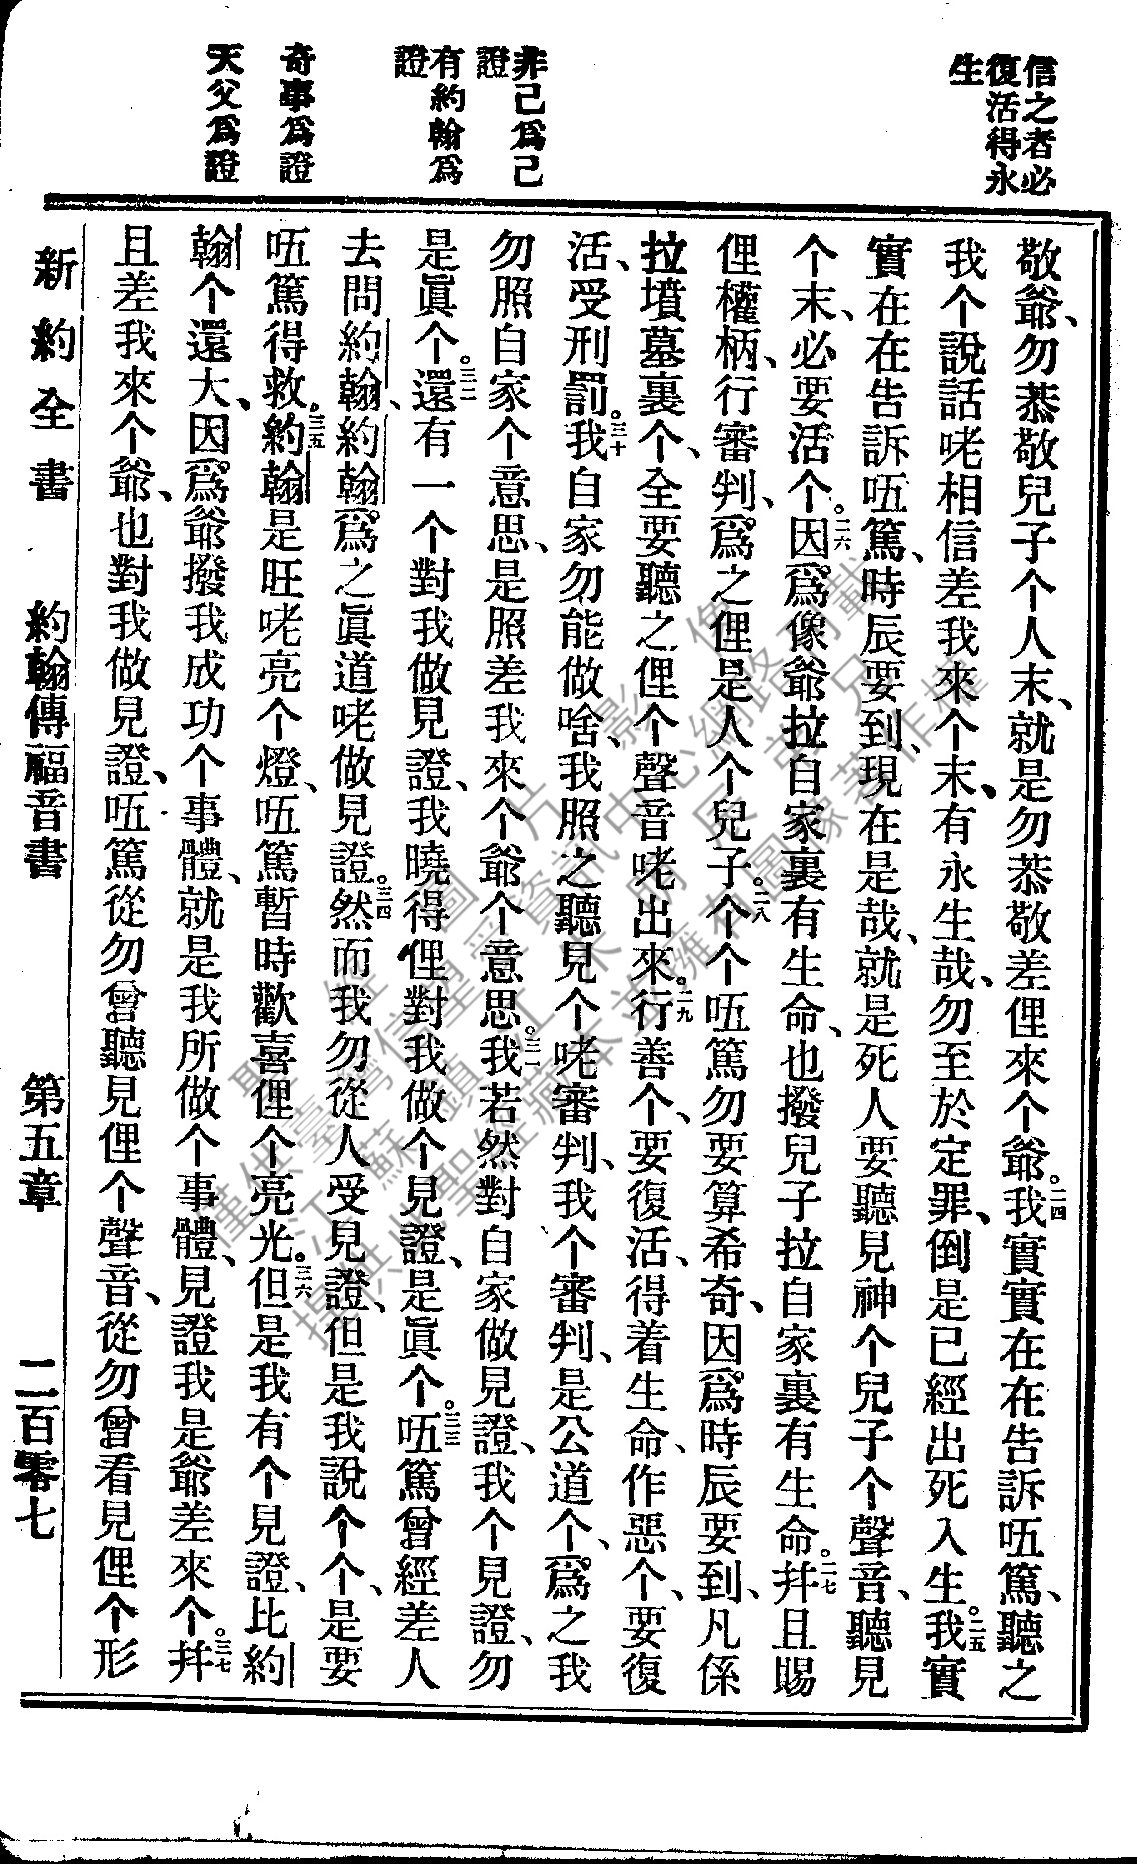 信之者必
復活得永
生
非己爲己
證
有約翰爲
證
奇事爲證
天父爲證
敬爺、勿恭敬兒子个人末、就是勿恭敬差俚來个爺。二四我實實在在告訴㕶篤、聽之
我个說話咾相信差我來个末、有永生哉、勿至於定罪、倒是已經出死入生。二五我實
實在在告訴㕶篤、時辰要到、現在是哉、就是死人要聽見神个兒子个聲音、聽見
个末、必要活个。二六因爲像爺拉自家裏有生命、也撥兒子拉自家裏有生命。二七幷且賜
俚權柄、行審判、爲之俚是人个兒子。二八个个㕶篤勿要算希奇、因爲時辰要到、凡係
拉墳墓裏个、全要聽之俚个聲音咾出來。二九行善个、要復活、得着生命、作惡个、要復
活、受刑罰。三十我自家勿能做啥、我照之聽見个咾審判、我个審判、是公道个、爲之我
勿照自家个意思、是照差我來个爺个意思。三一我若然對自家做見證、我个見證、勿
是眞个。三二還有一个對我做見證、我曉得俚對我做个見證、是眞个。三三㕶篤曾經差人
去問約翰、約翰爲之眞道咾做見證。三四然而我勿從人受見證、但是我說个个、是要
㕶篤得救。三五約翰是旺咾亮个燈、㕶篤暫時歡喜俚个亮光。三六但是我有个見證、比約
翰个還大、因爲爺撥我成功个事體、就是我所做个事體、見證我是爺差來个。三七幷
且差我來个爺、也對我做見證、㕶篤從勿曾聽見俚个聲音、從勿曾看見俚个形
新約全書 約翰傳福音書 第五章 二百零七